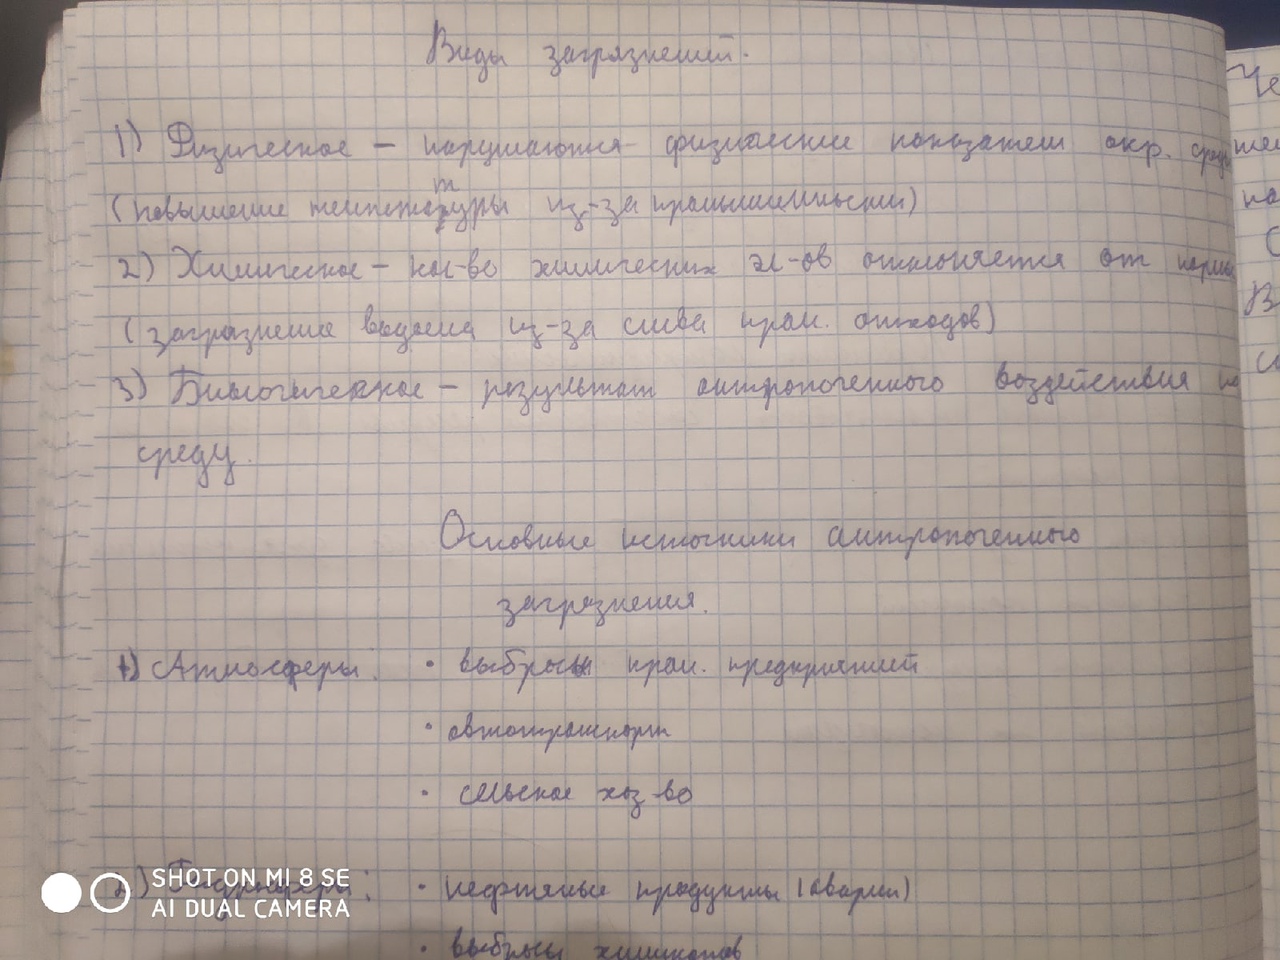 Виды загрязнений.
1) Физическое – нарушаются физические показатели окр. среды
(повышение температуры из-за промышленности)
2) Химическое – кол-во химических эл-ов отклоняется от нормы
(загрязнение водоема из-за слива пром. отходов)
3) Биологическое – результат антропогенного воздействия на
среду.
Основные источники антропогенного
загрязнения.
1) Атмосферы: • выбросы пром. предприятий
• автотранспорт
• сельское хоз-во
2) Гидросферы: • нефтяные продукты (аварии)
• выбросы химикатов
SHOT ON MI 8 SE
AI DUAL CAMERA